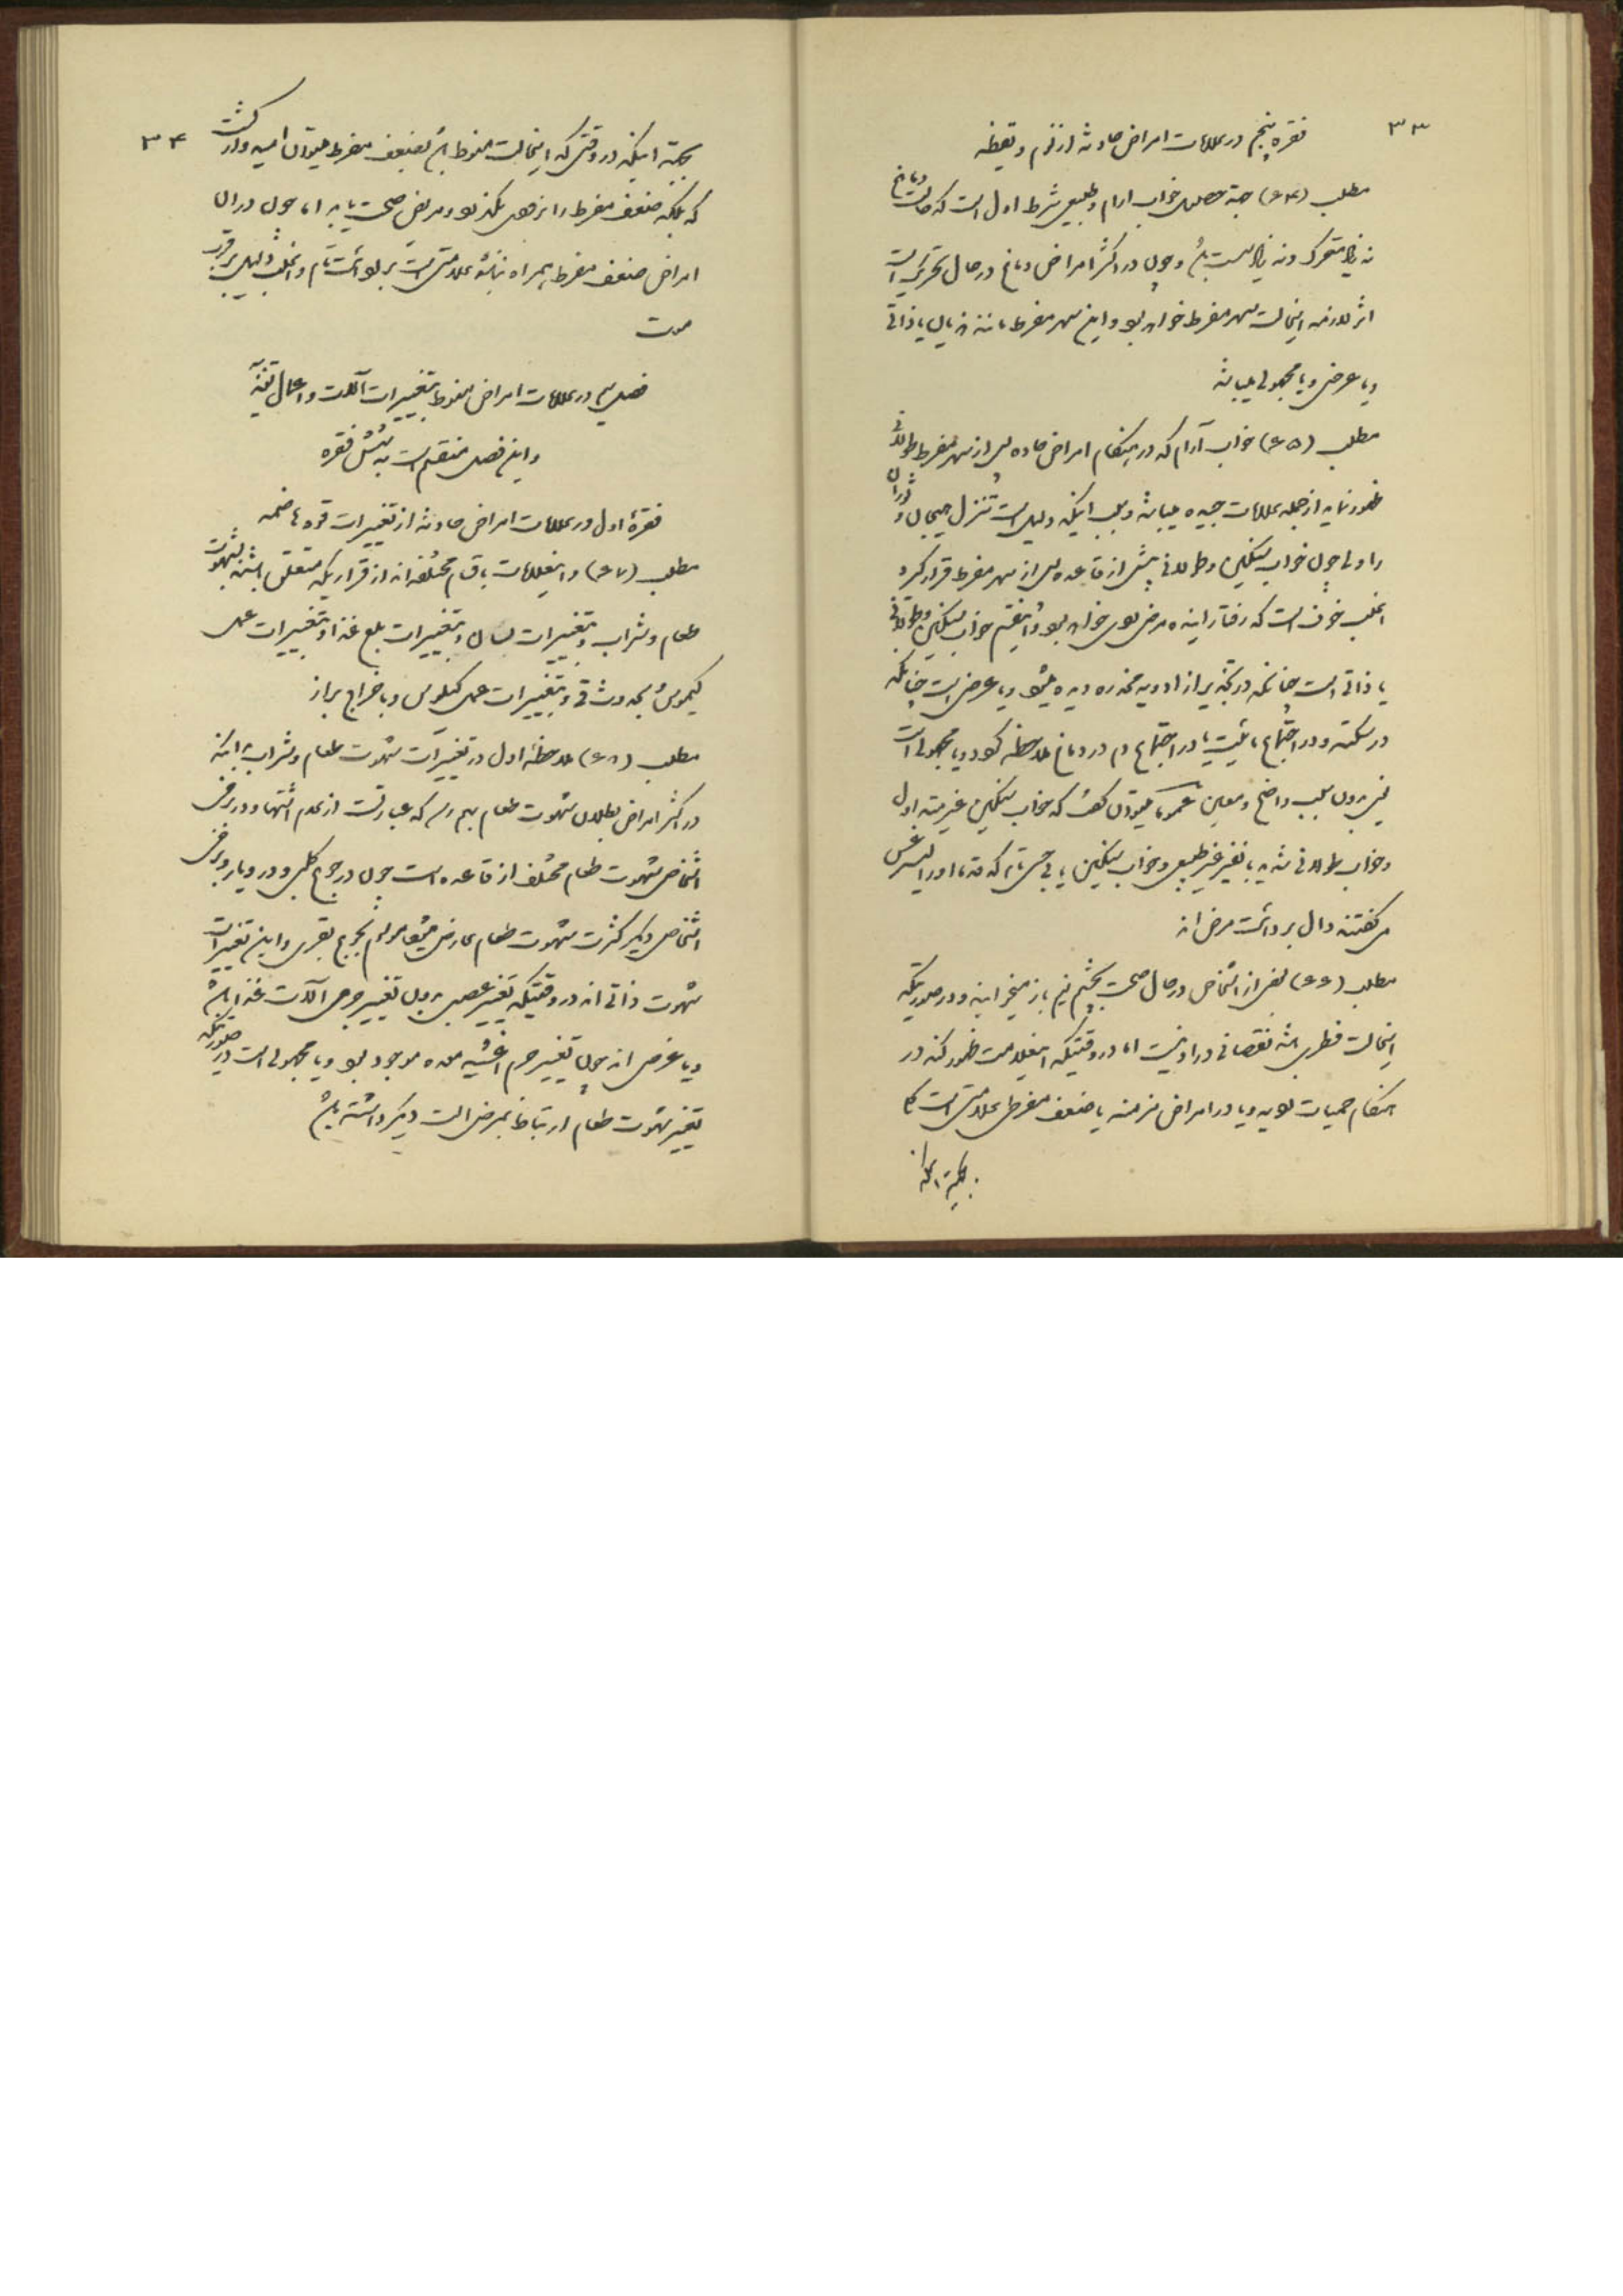 ۳۳
فقره پنجم در علامات امراض حادثه از نوم و یقظه
مطلب (۶۴) جهة حصول خواب ارام و طبیعی شرط اول است که حالت دماغ
نه زیاد متحرک و نه زیاد سست باشد و چون در اکثر امراض دماغ در حال تحریک است
اثر لازمه اینحالت سهر مفرط خواهد بود و این سهر مفرط مانند هذیان یا ذاتی
و یا عرضی و یا مجهولی میباشد
مطلب (۶۵) خواب آرام که در هنگام امراض حاده پس از سهر مفرط طولانی
ظهور نماید از جمله علامات جیده میباشد و بسبب اینکه دلیل است تنزل هیجان و ثوران
را ولی چون خواب سنگین و طولانی بیش از قاعده پس از سهر مفرط قرار گیرد
اغلب خوف است که رفتار اینده مرض بوی خواهد بود و اینقسم خواب سنگین و طولانی
یا ذاتی است چنانکه در تخدیر از ادویه مخدره دیده میشود و یا عرضی است چنانکه
در سکته و در اجتماع مائیت یا در اجتماع دم در دماغ ملاحظه شود و یا مجهولی است
یعنی بدون سبب واضح و معین عموما میتوان گفت که خواب سنگین غیر منتبه اول
و خواب طولانی شدید با نفیر غیر طبیعی و خواب سنگین با بی حسی تام که قدما اورا لیثرغس
می گفتند دال بر ردائت مرض اند
مطلب (۶۶) بعضی از اشخاص در حال صحت بچشم نیم باز میخوابند و در صورتیکه
اینحالت فطری باشد نقصانی در او نیست اما در وقتیکه اینعلامت ظهور کند در
هنگام حمیات بوبیه و یا در امراض مزمنه با ضعف مفرط علامتی است
بجهة اینکه
۳۴
بجهة اینکه در وقتی که اینحالت منوط باشد بضعف مفرط میتوان امیدوار گشت
که بلکه ضعف مفرط را زایل بکند و مریض صحت یابد اما چون در ان
امراض ضعف مفرط همراه نباشد علامتی است بر ردائت تام و اغلب دلیل بر قرب
موت
فصل سیم در علامات امراض منوط بتغییرات آلات و اعمال تغذیه
و این فصل منقسم است به شش فقره
فقرهٔ اول در علامات امراض حادثه از تغییرات قوه هاضمه
مطلب (۶۷) و اینعلامات باقسام مختلفه اند از قراریکه متعلق باشند بشهوت
طعام و شراب و بتغییرات لسان و بتغییرات بلع غذا و بتغییرات عمل
کیموس و بحدوث قی و بتغییرات عمل کیلوس و باخراج براز
مطلب (۶۸) ملاحظهٔ اول در تغییرات شهوت طعام و شراب بدانکه
در اکثر امراض بطلان شهوت طعام بهم رسد که عبارتست از عدم اشتها و در برخی
اشخاص شهوت طعام مختلف از قاعده است چون در جوع کلبی و در ویار و برخی
اشخاص دیگر کثرت شهوت طعام عارض میشود موسوم بجوع بقری و این تغییرات
شهوت ذاتی اند در وقتیکه تغییر عصبی بدون تغییر جوهر آلات غذا باشد
و یا عرضی اند چون تغییر جرم اغشیه معده موجود بود و یا مجهولی است در صورتیکه
تغییر شهوت طعام ارتباط بمرض الت دیگر داشته باشد